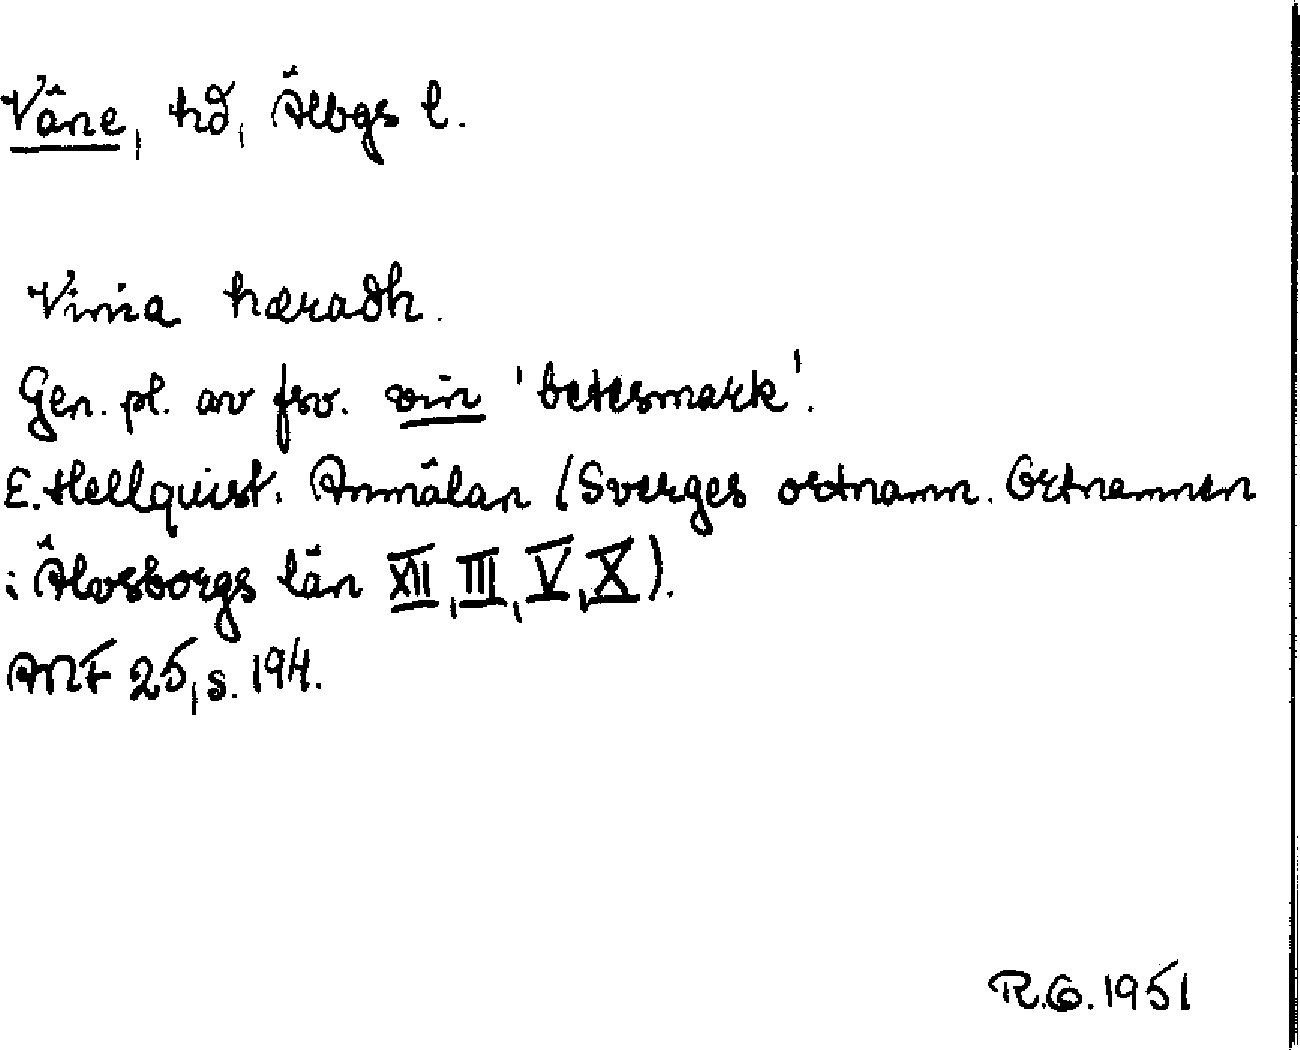 Väne, hd, Älvbgs l.
Vinia hæradh.
Gen. pl. av fsv. vin 'betesmark'.
E. Hellquist. Anmälan (Sverges ortnamn. Ortnamnen
i Älvsborgs län XII, III, V, X).
ANF 25, s. 194.
R.G. 1951